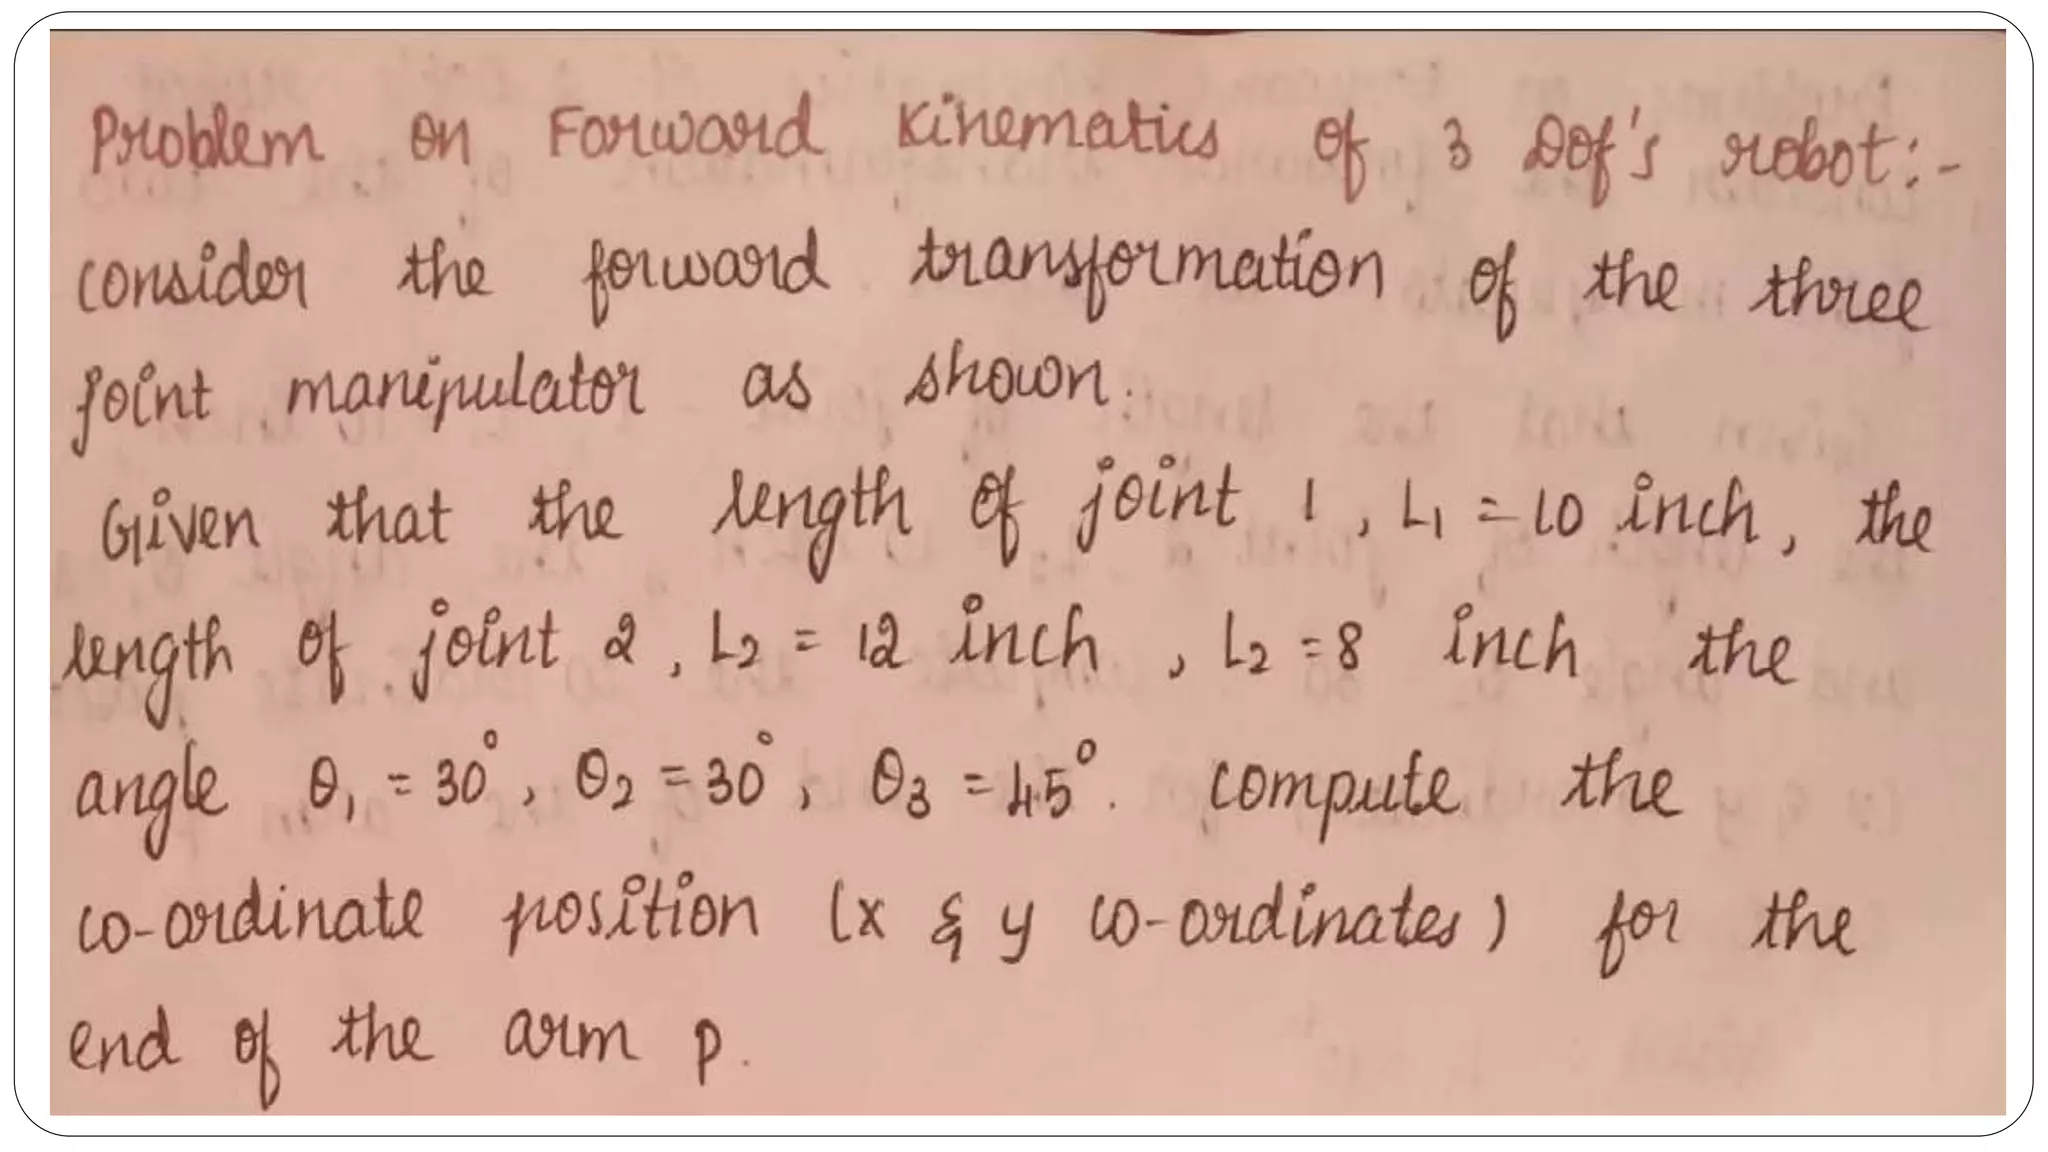 Problem on Forward Kinematics of 3 Dof's robot:-
consider the forward transformation of the three
joint manipulator as shown.
Given that the length of joint 1, L1 = 10 inch, the
length of joint 2, L2 = 12 inch, L2 = 8 inch the
angle θ1 = 30°, θ2 = 30°, θ3 = 45°. compute the
co-ordinate position (x & y co-ordinates) for the
end of the arm p.